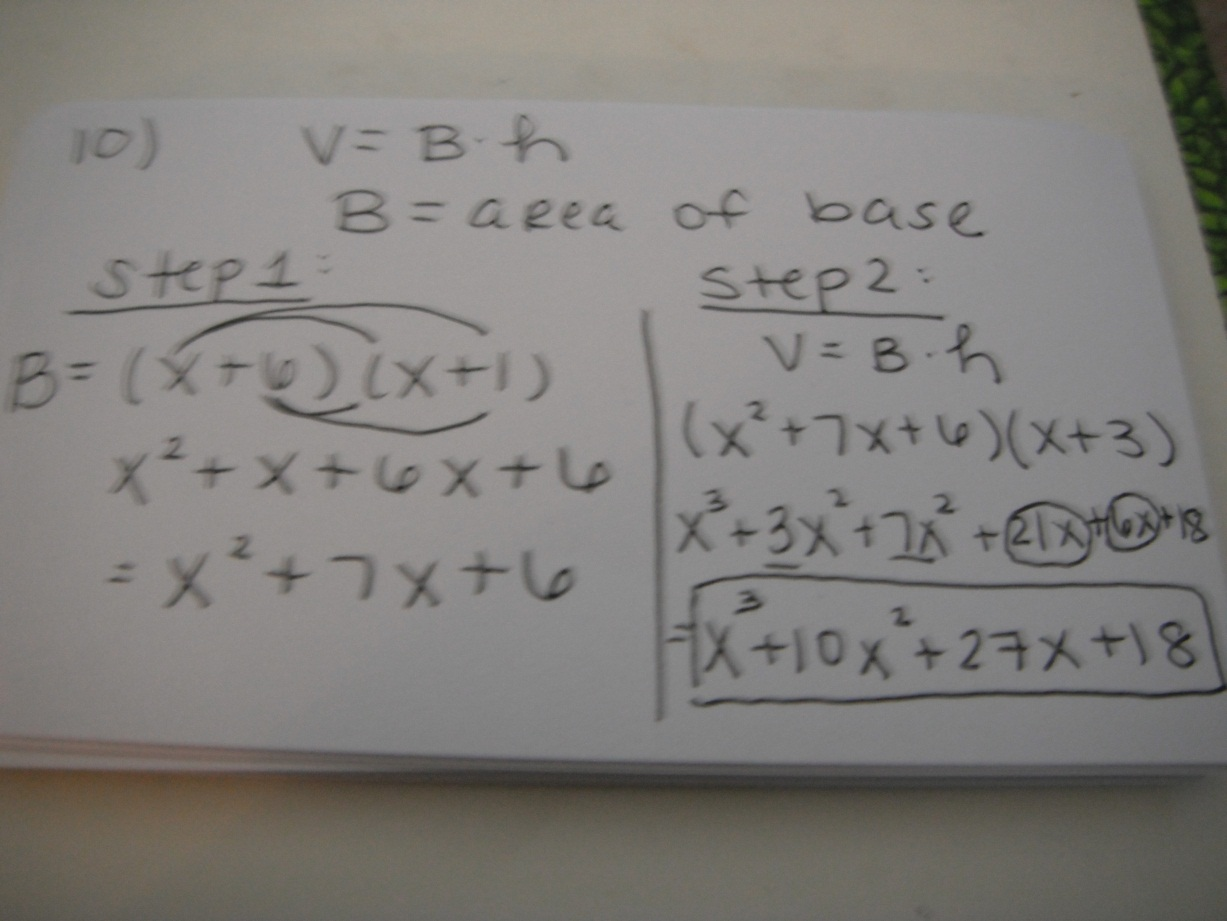 10) V = B · h
B = area of base
Step 1:
B = (x+6)(x+1)
x² + x + 6x + 6
= x² + 7x + 6
Step 2:
V = B · h
(x² + 7x + 6)(x+3)
x³ + 3x² + 7x² + 21x + 6x + 18
= x³ + 10x² + 27x + 18